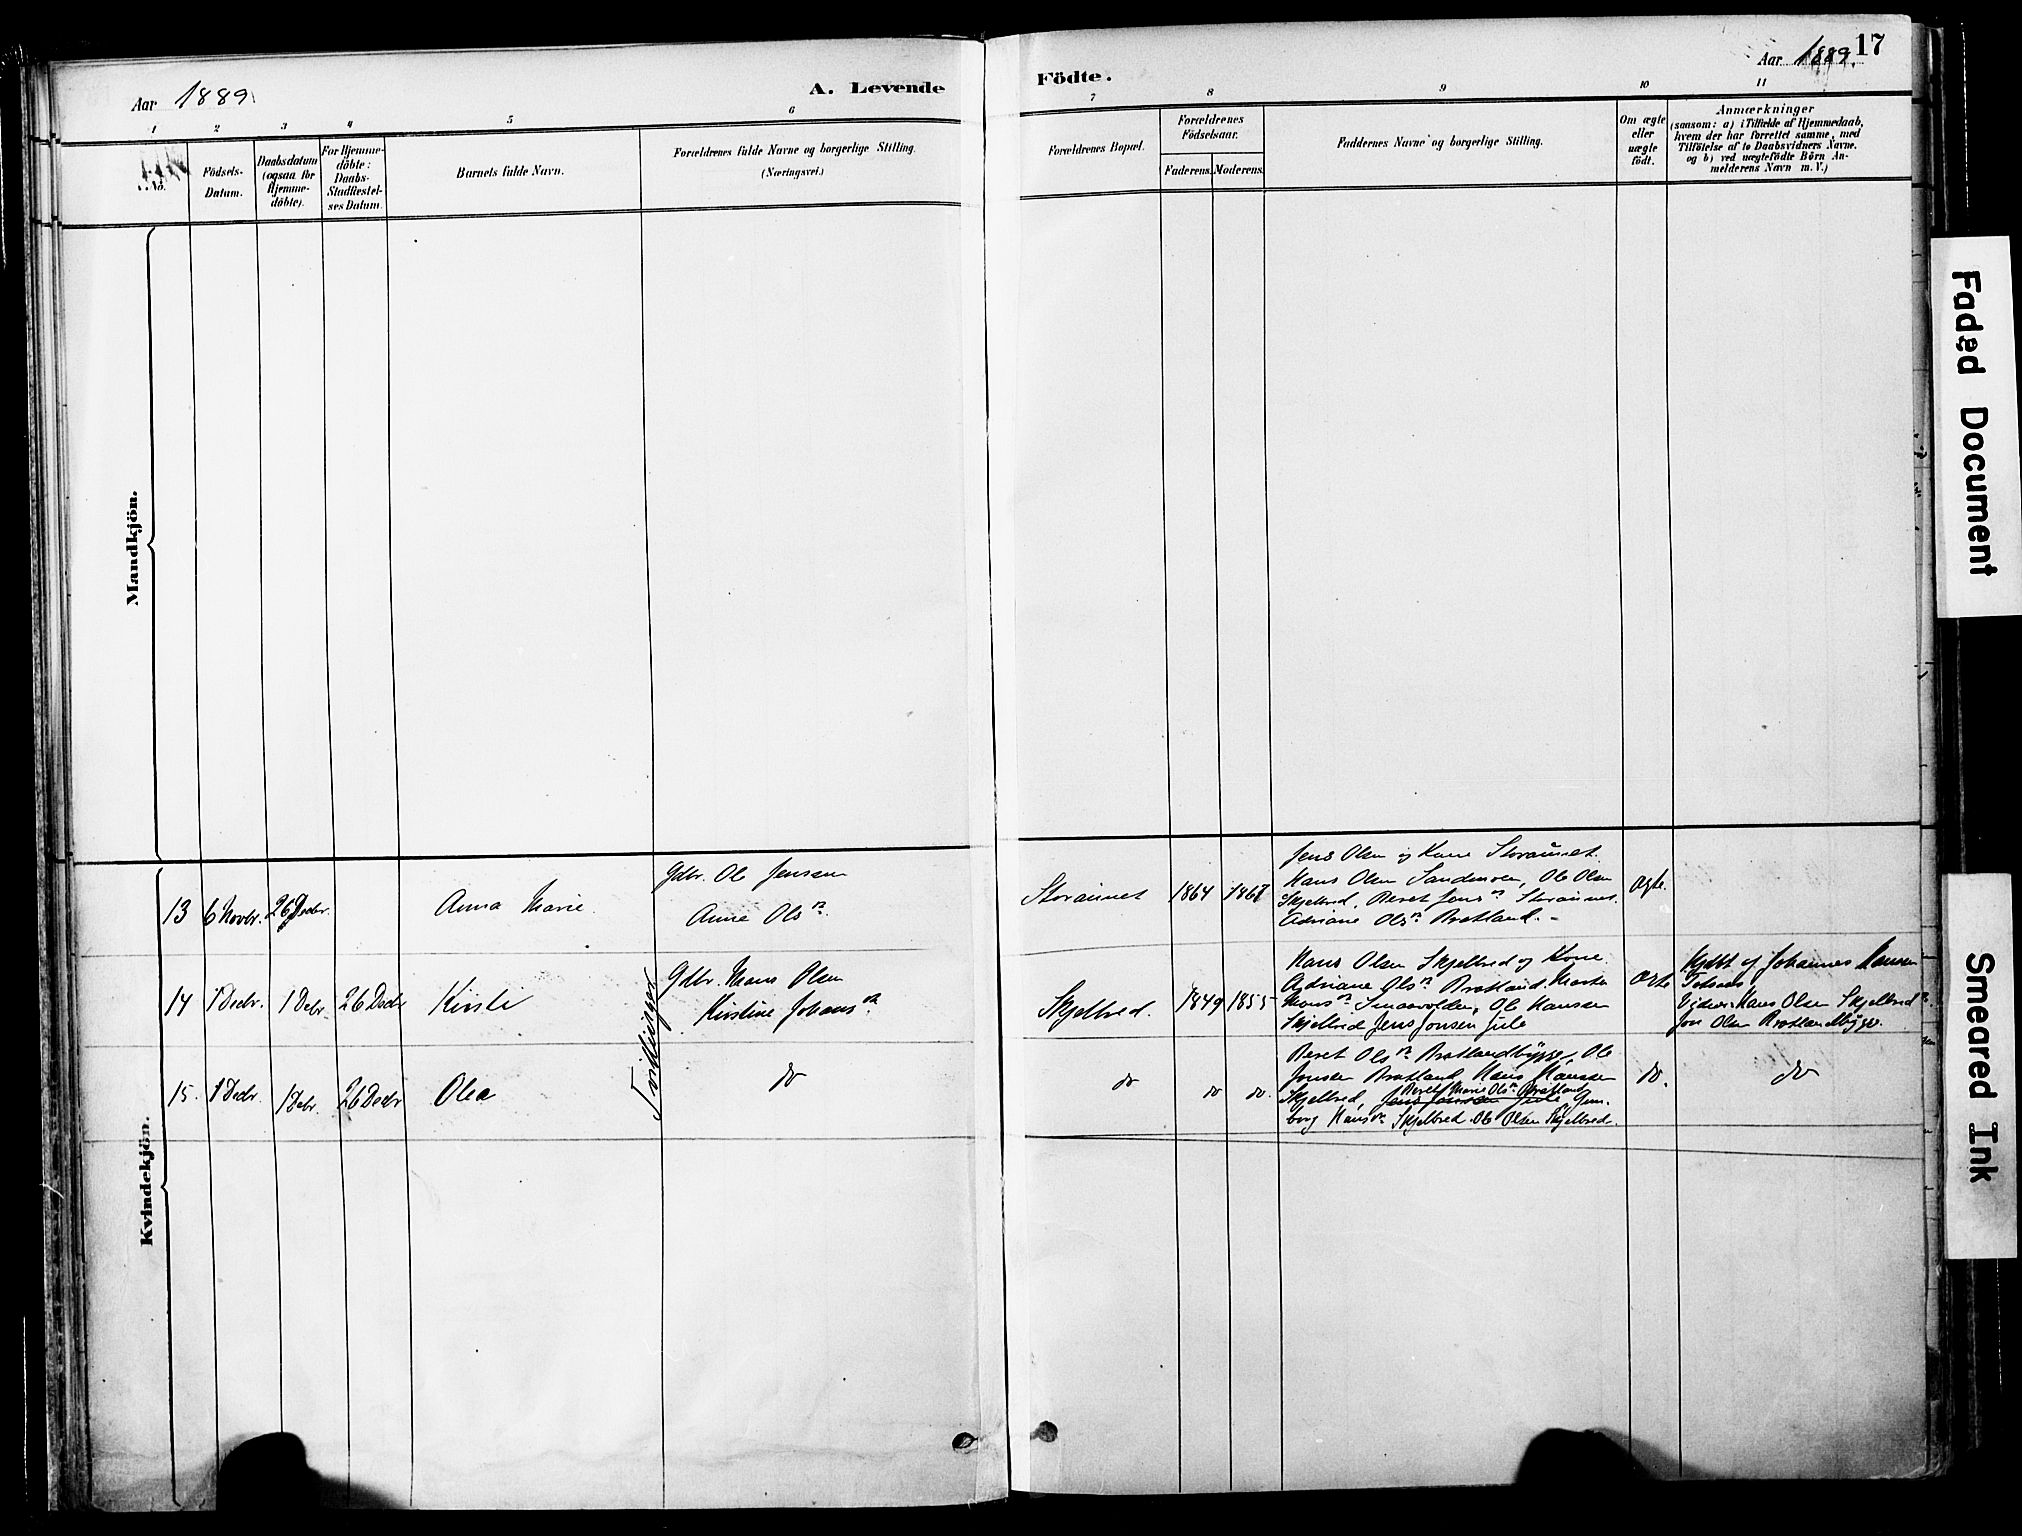 Aar 1889.
A. Levende
Födte.
Aar 1889.
17
1 2 3 4 5 6 7 8 9 10 11
No.
Födsels-
Datum.
Daabsdatum
(ogsaa for
Hjemme-
döbte).
For Hjemme-
döbte:
Daabs-
Stadfæstel-
ses Datum.
Barnets fulde Navn.
Forældrenes fulde Navne og borgerlige Stilling.
(Næringsvei.)
Forældrenes Bopæl.
Forældrenes
Födselsaar.
Faderens. Moderens.
Faddernes Navne og borgerlige Stilling.
Om ægte
eller
uægte
födt.
Anmærkninger
(saasom: a) i Tilfælde af Hjemmedaab,
hvem der har forrettet samme, med
Tilföielse af to Daabsvidners Navne.
og b) ved uægtefödte Börn An-
melderens Navn m. V.)
Mandkjön.
Kvindekjön.
13 6 Novbr. 26 Decbr.
Anna Marie.
Gdbr. Ole Jensen
Anne Olsn.
Storaunet 1864 1867
Jens Olsen og Kone Storaunet.
Hans Olsen Sandmoen, Ole Olsen
Skjelbred, Beret Jensn Storaunet.
Adriane Olsn Bratland. -
Ægte.
14 1 Decbr. 1 Debr. 26 Decbr
Kirsti
Tvillinger
Gdbr. Hans Olsen
Kirstine Johansn.
Skjelbred. 1849 1855
Hans Olsen Skjelbred og Kone.
Adriane Olsn Bratland, Marta
Hansn Smaavolden, Ole Hansen
Skjelbred Jens Jonsen Jule
Ægte
Hjdbt af Johannes Hansen
Vidner: Hans Olsen Skjelbred
Jon Olsen Bratlandbygge.
15. 1 Decbr. 1 Debr. 26 Decbr
Olea
do
do do do.
Beret Olsn Bratlandbygge, Ole
Jonsen Bratland, Hans Hanssen
Beret Marie Olsn Bratland
Skjelbred, Jens Jonssen Jule, Gun-
borg Hansn Skjelbred. Ole Olsen Skjelbred.
do.
do
Faded Document
Smeared Ink